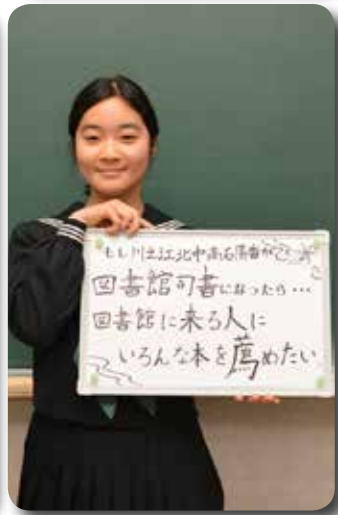 もし川之江北中
図書館司書になったら…
図書館に来る人に
いろんな本を薦めたい